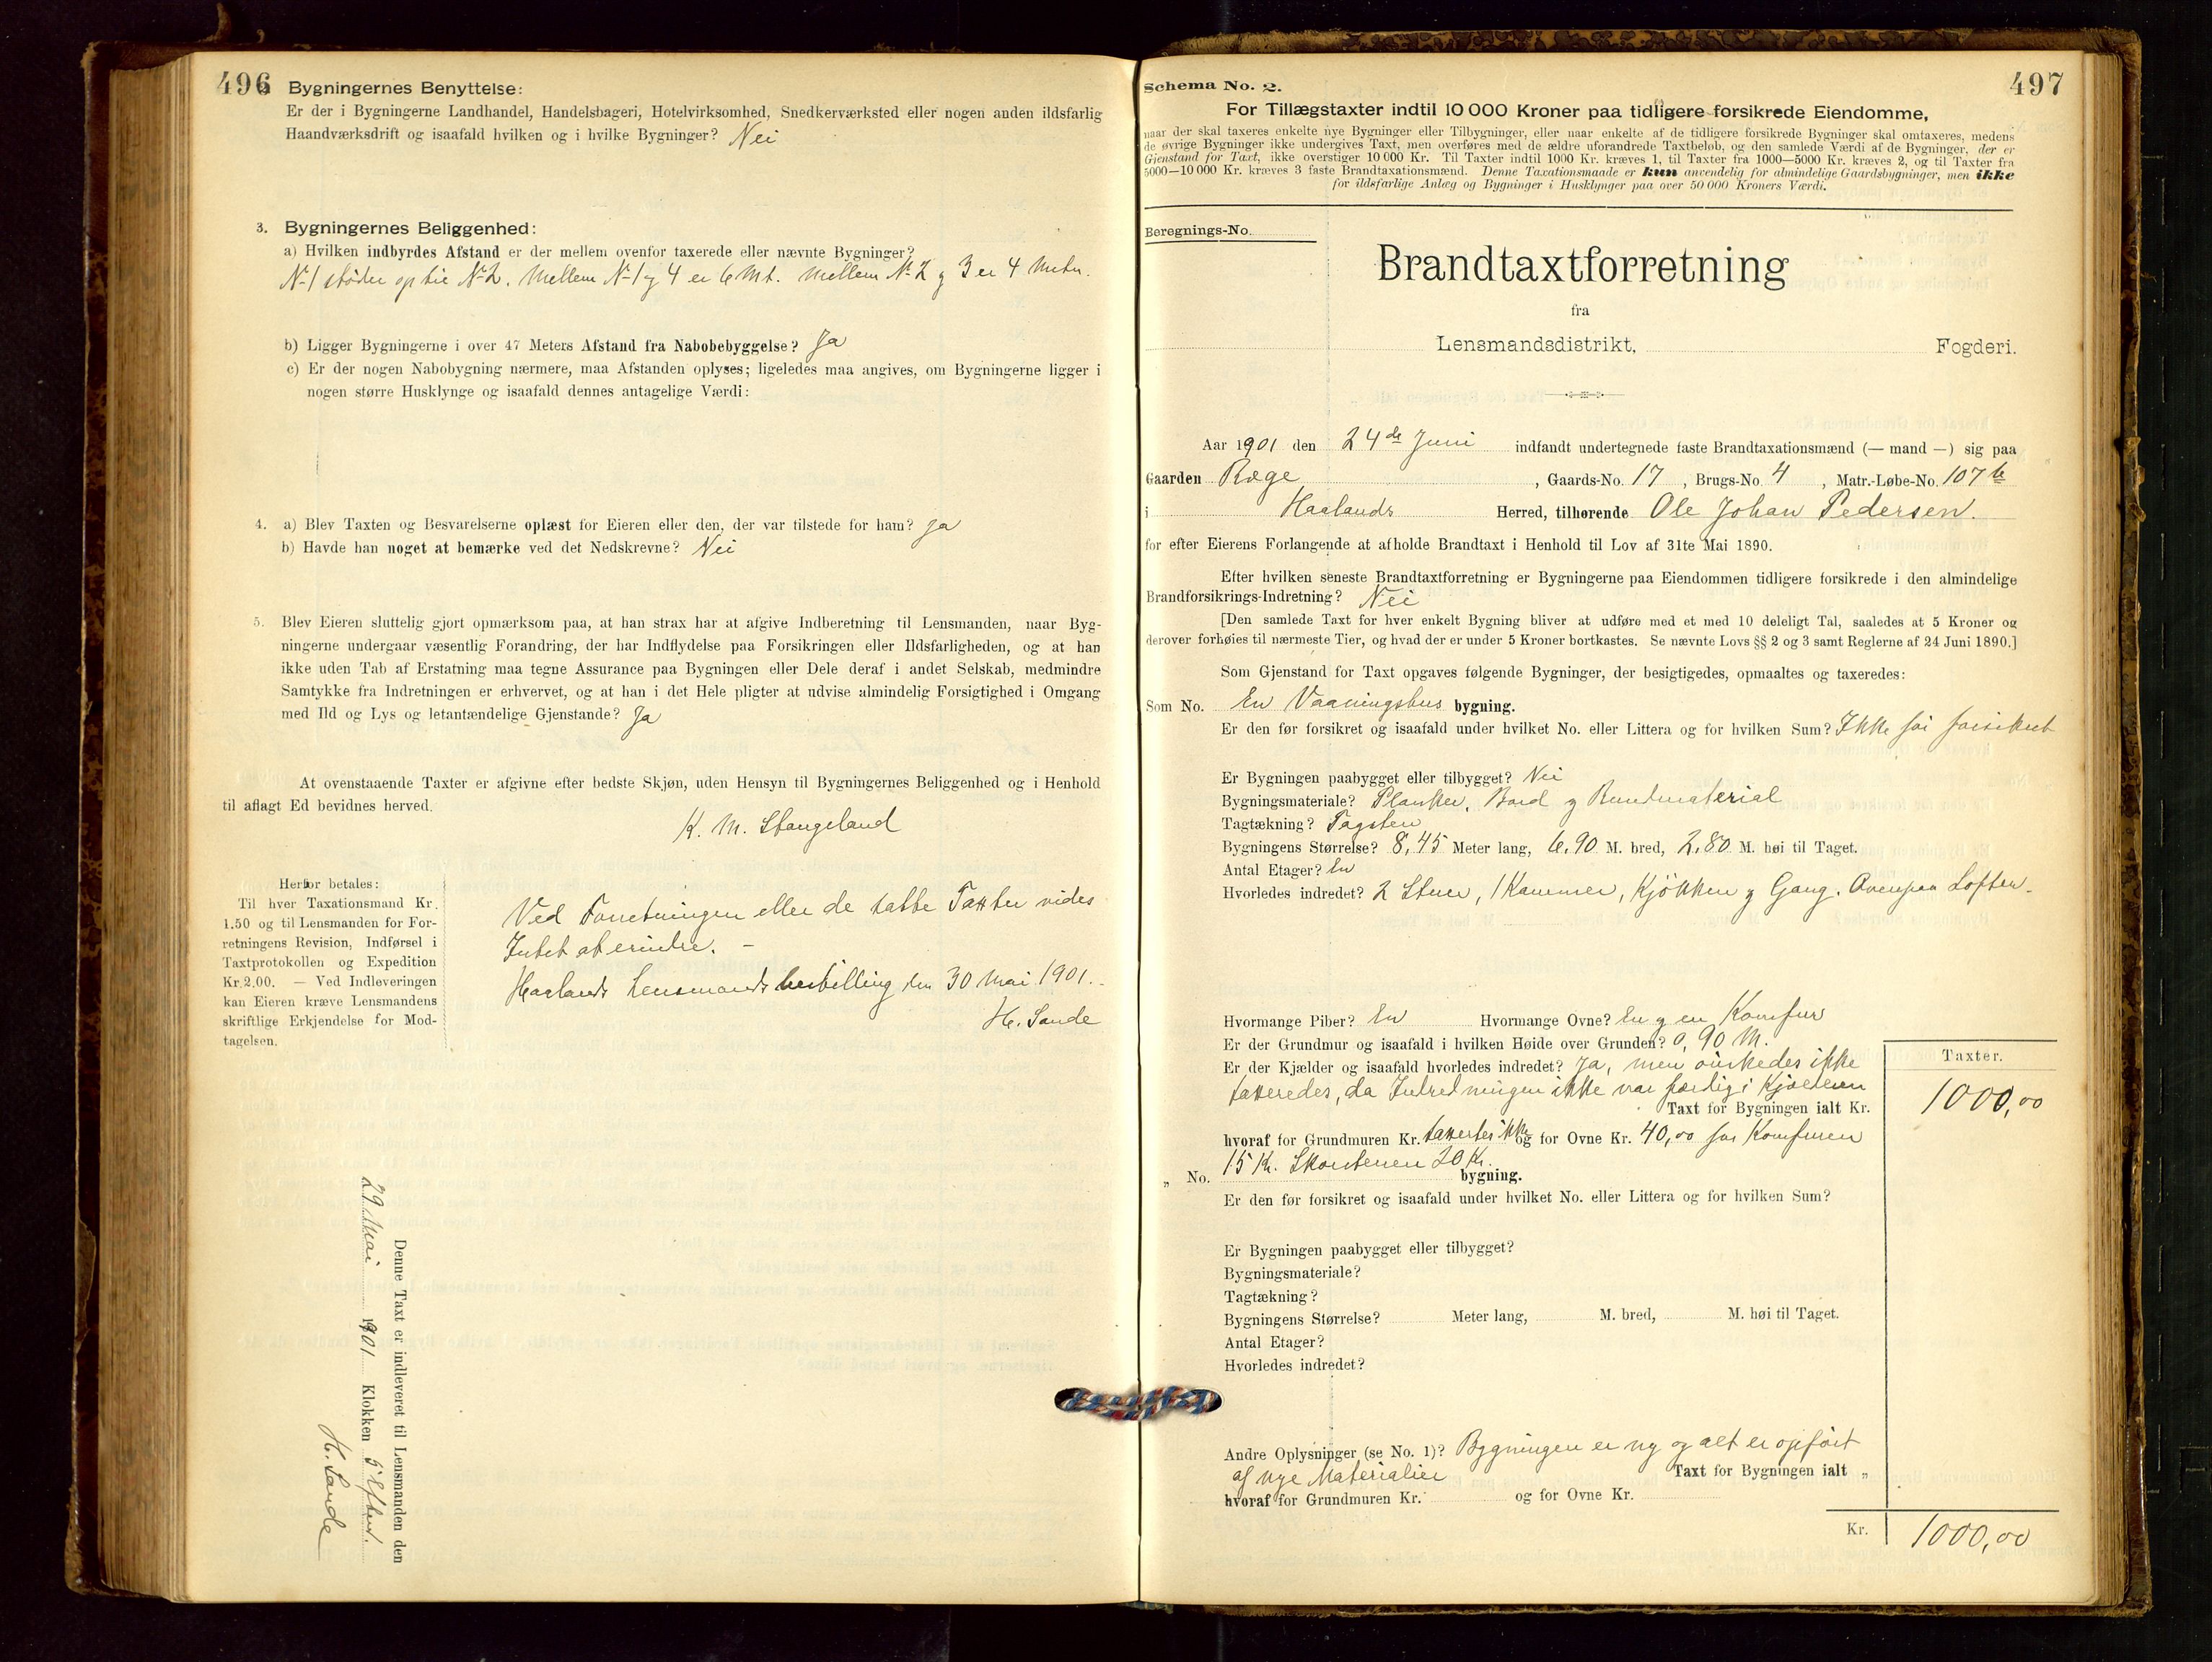 496 Bygningernes Benyttelse:
Er der i Bygningerne Landhandel, Handelsbageri, Hotelvirksomhed, Snedkerværksted eller nogen anden ildsfarlig
Haandværksdrift og isaafald hvilken og i hvilke Bygninger? Nei
3. Bygningernes Beliggenhed:
a) Hvilken indbyrdes Afstand er der mellem ovenfor taxerede eller nævnte Bygninger?
No 1 støder op til No 2. Mellem No 1 og 4 er 6 Mt. Mellem No 2 og 3 er 4 Meter.
b) Ligger Bygningerne i over 47 Meters Afstand fra Nabobebyggelse? Ja
c) Er der nogen Nabobygning nærmere, maa Afstanden oplyses; ligeledes maa angives, om Bygningerne ligger i
nogen større Husklynge og isaafald dennes antagelige Værdi:
4. a) Blev Taxten og Besvarelserne oplæst for Eieren eller den, der var tilstede for ham? Ja
b) Havde han noget at bemærke ved det Nedskrevne? Nei
5. Blev Eieren sluttelig gjort opmærksom paa, at han strax har at afgive Indberetning til Lensmanden, naar Byg-
ningerne undergaar væsentlig Forandring, der har Indflydelse paa Forsikringen eller Ildsfarligheden, og at han
ikke uden Tab af Erstatning maa tegne Assurance paa Bygningen eller Dele deraf i andet Selskab, medmindre
Samtykke fra Indretningen er erhvervet, og at han i det Hele pligter at udvise almindelig Forsigtighed i Omgang
med Ild og Lys og letantændelige Gjenstande? Ja
At ovenstaaende Taxter er afgivne efter bedste Skjøn, uden Hensyn til Bygningernes Beliggenhed og i Henhold
til aflagt Ed bevidnes herved.
K. M. Stangeland
Herfor betales:
Til hver Taxationsmand Kr.
1.50 og til Lensmanden for For-
retningens Revision, Indførsel i
Taxtprotokollen og Expedition
Kr. 2.00. — Ved Indleveringen
kan Eieren kræve Lensmandens
skriftlige Erkjendelse for Mod-
tagelsen.
Ved Forretningen eller de satte Taxter vides
Intet at erindre. —
Haalands Lensmandsbestilling den 30 Mai 1901.
H. Sande
Denne Taxt er indleveret til Lensmanden den
29 Mai 1901 Klokken 5 Efterm.
H. Sande
Schema No. 2. 497
For Tillægstaxter indtil 10 000 Kroner paa tidligere forsikrede Eiendomme,
naar der skal taxeres enkelte nye Bygninger eller Tilbygninger, eller naar enkelte af de tidligere forsikrede Bygninger skal omtaxeres, medens
de øvrige Bygninger ikke undergives Taxt, men overføres med de ældre uforandrede Taxtbeløb, og den samlede Værdi af de Bygninger, der er
Gjenstand for Taxt, ikke overstiger 10 000 Kr. Til Taxter indtil 1000 Kr. kræves 1, til Taxter fra 1000—5000 Kr. kræves 2, og til Taxter fra
5000—10 000 Kr. kræves 3 faste Brandtaxationsmænd. Denne Taxationsmaade er kun anvendelig for almindelige Gaardsbygninger, men ikke
for ildsfarlige Anlæg og Bygninger i Husklynger paa over 50 000 Kroners Værdi.
Beregnings-No.
Brandtaxtforretning
fra
Lensmandsdistrikt, Fogderi.
Aar 1901 den 24de Juni indfandt undertegnede faste Brandtaxationsmænd (— mand —) sig paa
Gaarden Ræge, Gaards-No. 17, Brugs-No. 4, Matr.-Løbe-No. 107 b
i Haalands Herred, tilhørende Ole Johan Pedersen.
for efter Eierens Forlangende at afholde Brandtaxt i Henhold til Lov af 31te Mai 1890.
Efter hvilken seneste Brandtaxtforretning er Bygningerne paa Eiendommen tidligere forsikrede i den almindelige
Brandforsikrings-Indretning? Nei
[Den samlede Taxt for hver enkelt Bygning bliver at udføre med et med 10 deleligt Tal, saaledes at 5 Kroner og
derover forhøies til nærmeste Tier, og hvad der er under 5 Kroner bortkastes. Se nævnte Lovs §§ 2 og 3 samt Reglerne af 24 Juni 1890.]
Som Gjenstand for Taxt opgaves følgende Bygninger, der besigtigedes, opmaaltes og taxeredes:
Som No. En Vaaningshus bygning.
Er den før forsikret og isaafald under hvilket No. eller Littera og for hvilken Sum? Ikke før forsikret
Er Bygningen paabygget eller tilbygget? Nei
Bygningsmateriale? Planker, Bord og Rundmaterial
Tagtækning? Tagsten
Bygningens Størrelse? 8,45 Meter lang, 6,90 M. bred, 2,80 M. høi til Taget.
Antal Etager? En
Hvorledes indredet? 2 Stuer, 1 Kammer, Kjøkken og Gang. Ovenpaa Loften.
Hvormange Piber? En Hvormange Ovne? En og en Komfur
Er der Grundmur og isaafald i hvilken Høide over Grunden? 0,90 M.
Er der Kjælder og isaafald hvorledes indredet? Ja, men ønskedes ikke
taxeredes, da Indredningen ikke var færdig i Kjælderen
Taxter.
Taxt for Bygningen ialt Kr. 1000,00
hvoraf for Grundmuren Kr. taxertes ikke og for Ovne Kr. 40,00 for Komfuren
15 Kr. Skorstenen 20 Kr.
„ No. bygning.
Er den før forsikret og isaafald under hvilket No. eller Littera og for hvilken Sum?
Er Bygningen paabygget eller tilbygget?
Bygningsmateriale?
Tagtækning?
Bygningens Størrelse? Meter lang, M. bred, M. høi til Taget.
Antal Etager?
Hvorledes indredet?
Andre Oplysninger (se No. 1)? Bygningen er ny og alt er opført
af nye Materialier Taxt for Bygningen ialt „
hvoraf for Grundmuren Kr. og for Ovne Kr.
Kr. 1000,00